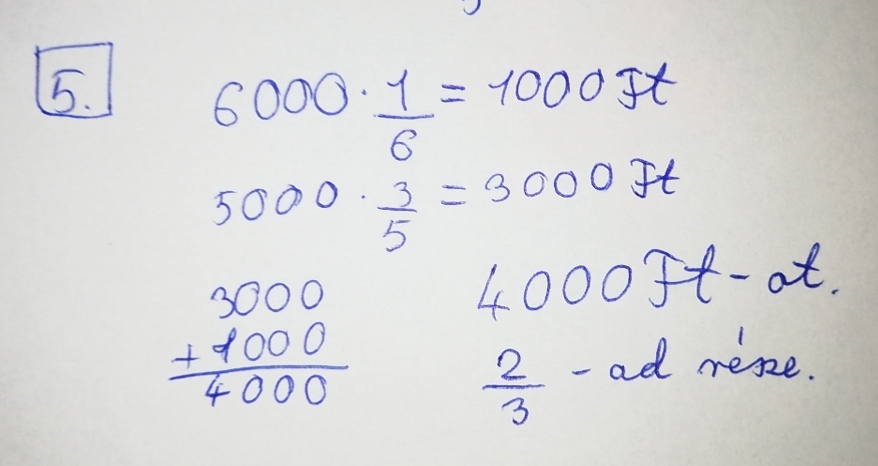 5.
6000 · 1/6 = 1000 Ft
5000 · 3/5 = 3000 Ft
3000
+ 1000
4000
4000 Ft-ot.
2/3 -ad része.